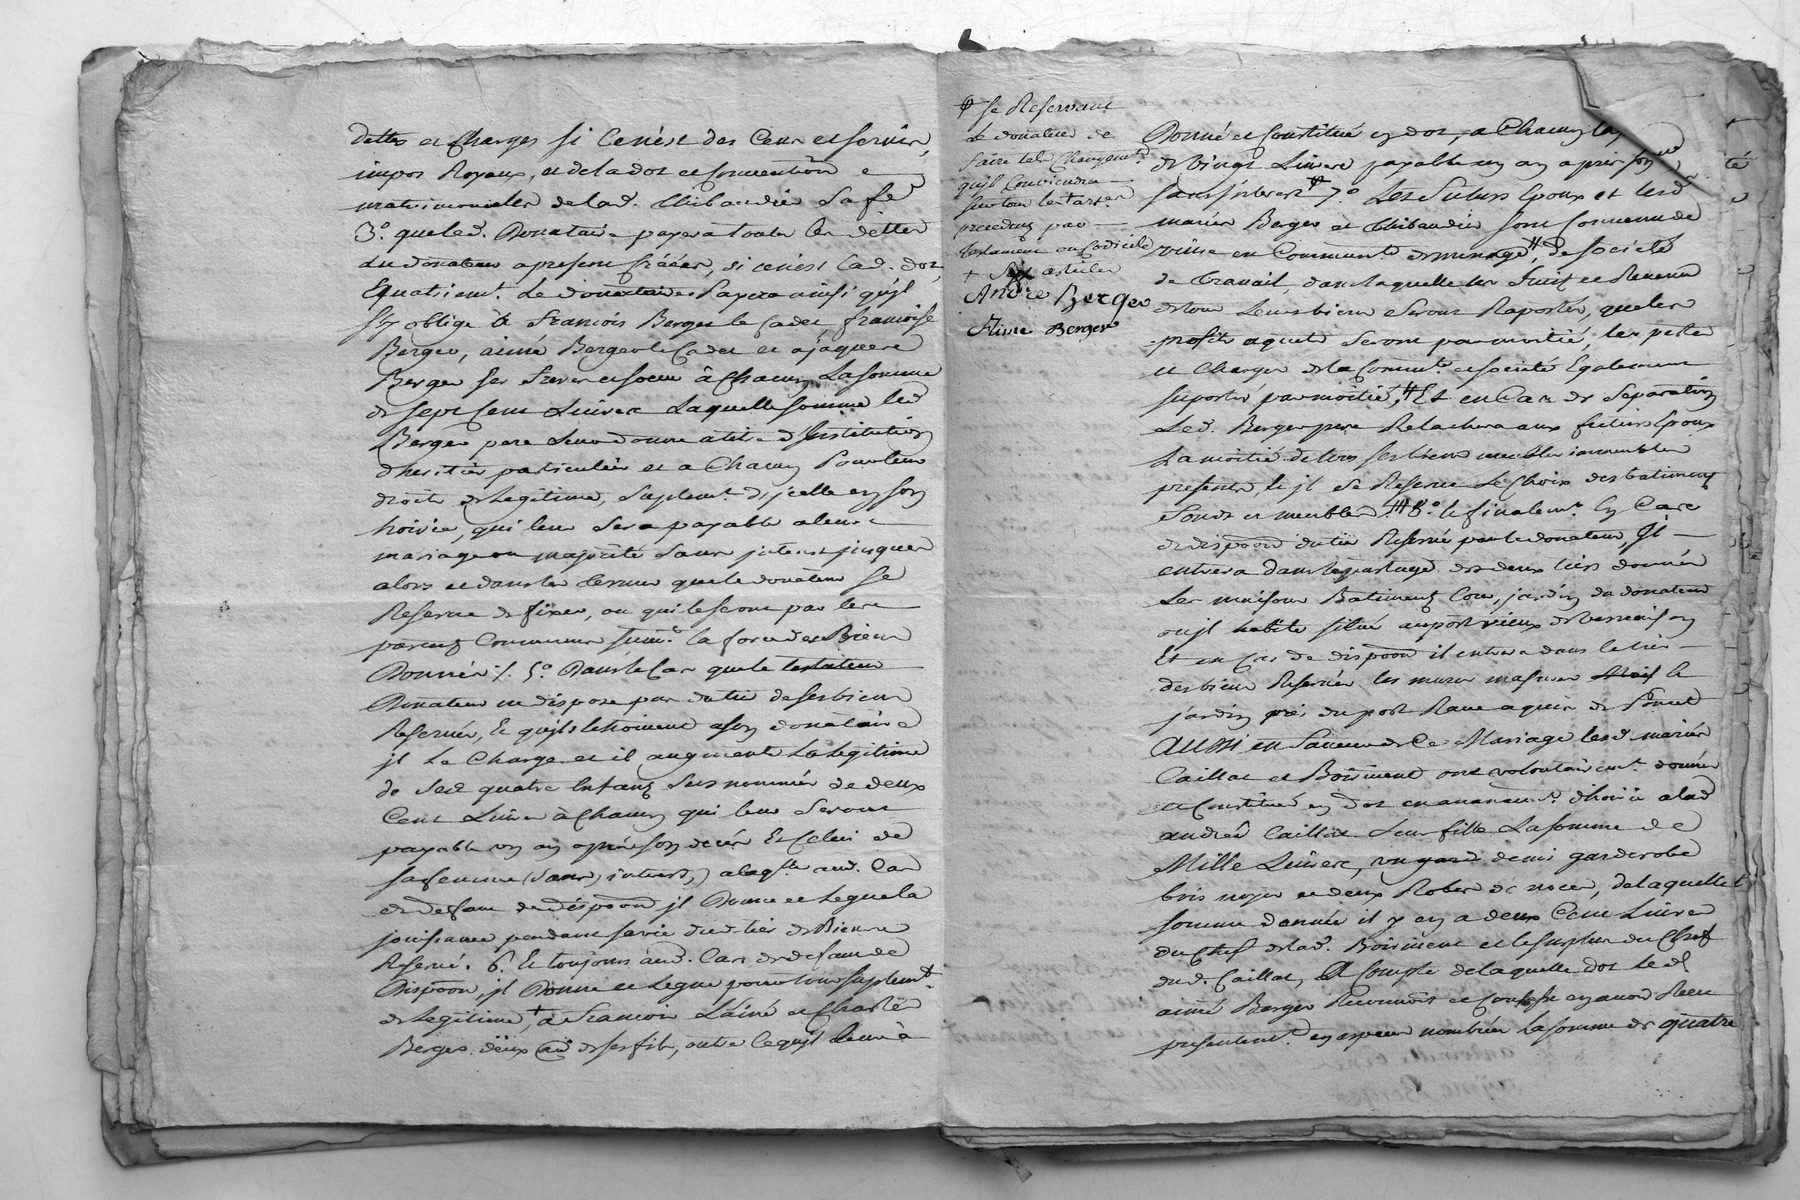 dettes et Charges si Cenést des Cens et servis,
impos Royaux, et de la dot et Convention e
matrimonialles de lad. Thibaudier Sa fe
3.° que led. Donataire payera toutes les dettes
du donateur a present Créées, si cenést lad. dot,
Equatriemt. Le donataire Payera ainsi quil
sy oblige à François Berger le Cadet françoise
Berger, aimé Berger le Cadet et a jaqueme
Berger ses freres et soeur à Chacun La somme
de sept Cent Livres Laquelle somme led
Berger pere Leur donne a titre d'Institution
d'heritier particulier et a Chacun Pour leur
droits de Legitime, suplemt. d'jcelle en son
hoirie, qui leur Sera payable a leur
mariage ou majorité Sans jnterest jusques
alors et dans les termes que le donateur se
Reserve de fixer, ou qui le seront par leurs
parents Communs suivt. la force des Biens
Donnés /. 5.° Dans le Cas que le testateur
Donateur ne dispose pas du tier de ses biens
Reservés, Et quils tchoiment a son donataire
jl Le Charge et il augmente La legitime
de sesd quatre Enfans sus nommés de deux
Cent Livres à Chacun qui leur Seront
payable un an après son decés Et Celui de
sa femme (sans interest,) a laqlle. aud. Cas
de defaut de dispoon jl Donne et Legue la
jouissance pendant sa vie dud. tier de Biens
Reservé. 6. Et toujours aud. Cas de defaut de
Dispoon, jl Donne et Legue pour tous suplemt.
de Legitime, + à François L'ainé et Charle
Berger deux de ses fils, outre Ce quil Leur à
se Reservant
le donateur de
faire tels Changemt.
quil Conviendra
sur tous les
precedents par
testament ou Codicile
+ Six articles
André Berger
Aime Berger
Donné et Constitué en dot, a Chacun la
de Vingt Livres payable un an après son
sans jnterest # 7.° Les Futurs Epoux et lesd
mariés Berger et Thibaudier sont Convenu de
vivre en Communté. de menage, # de société
de travail, dans laquelle les fruits et Revenus
de tous Leurs biens seront Raportés, que les
profits aquets seront par moitié, les pertes
et Charges de la Communté. et societé Egalement
suportés par moitié, # Et en Cas de Separation
Led. Berger pere Relachera aux futurs Epoux
La moitié de tous ses biens meubles immeubles
presents, et jl se Reserve Le Choix des batiments
fonds et meubles. # 8.° Et finalemt. En Cas
de dispoon du tier Reservé par le donateur, Jl
entrera dans le partage des deux tiers donnés
Les maisons Batiments Cour, jardin du donateur
ou jl habite situé au port vieux de vernaison
Et en Cas de dispoon il entrera dans le tier
des biens Reservés les murs masures le
jardin près du port Rave aquis de Poncet
Aussi en Faveur de Ce Mariage lesd mariés
Caillat et Boiriment ont volontairemt. donnés
et Constitué en Dot en avancemt. d'hoirie a lad
andrée Caillat Leur fille La somme de
Mille Livres, un garde demi garderobe
bois noyer et deux Robes de noces, de laquelle
somme donnée il y en a deux Cent Livres
du Chef de lad. Boiriment et le surplus du Chef
dud. Caillat, A Compte de laquelle dot Led
aimé Berger Reconnoit et Confesse en avoir Reçu
presentemt. en especes nombrées La somme de quatre